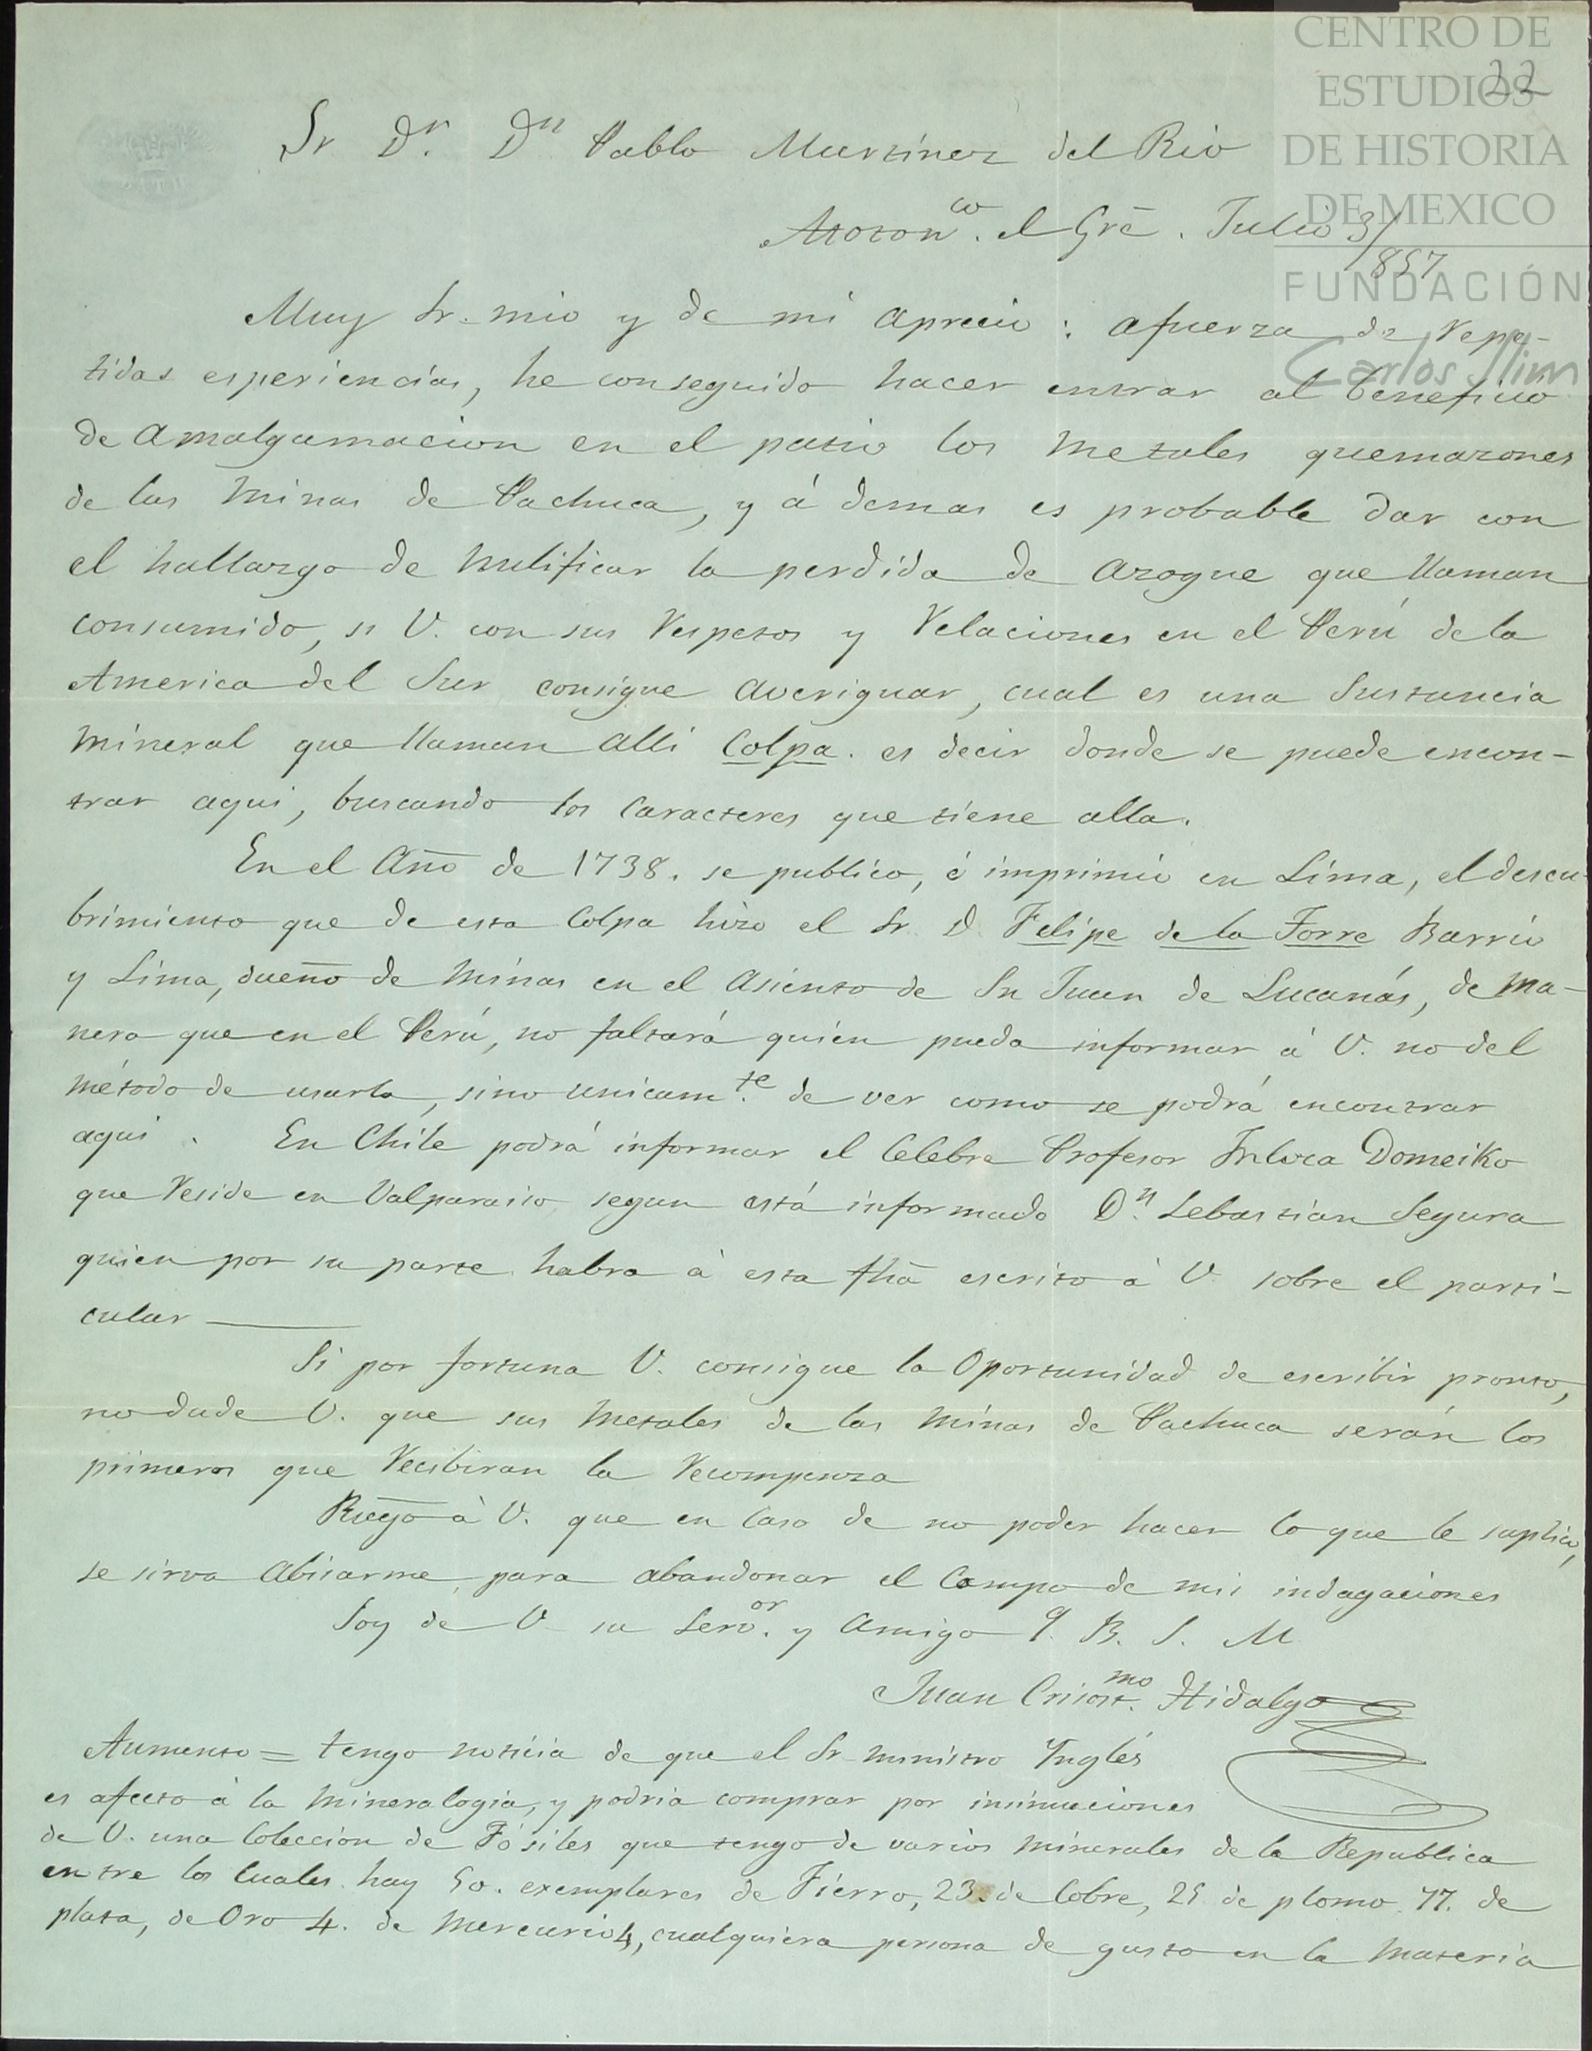 CENTRO DE
ESTUDIOS
DE HISTORIA
DE MEXICO
FUNDACIÓN
Carlos Slim
22
Sr Dr. Dn Pablo Martinez del Rio
Atotonco. el Gre. Julio 31/857
Muy Sr. mio y de mi aprecio: afuerza de repe-
tidas esperiencias, he conseguido hacer entrar al beneficio
de Amalgamacion en el patio los metales quemazones
de las minas de Pachuca, y á demas es probable dar con
el hallazgo de nulificar la perdida de azogue que llaman
consumido, si V. con sus respetos y relaciones en el Perú de la
America del Sur consigue averiguar, cual es una sustancia
mineral que llaman alli Colpa. es decir donde se puede encon-
trar aqui, buscando los caracteres que tiene alla.
En el Año de 1738. se publico, é imprimio en Lima, el descu-
brimiento que de esta Colpa hizo el Sr. D Felipe de la Torre Barrio
y Lima, dueño de minas en el Asiento de Sn Juan de Lucanás, de ma-
nera que en el Perú, no faltará quien pueda informar á V. no del
método de usarla, sino unicamte. de ver como se podrá encontrar
aqui. En Chile podrá informar el Celebre Profesor Domeiko
que reside en Valparaiso segun está informado Dn. Sebastian Segura
quien por su parte habra á esta fha escrito á V. sobre el parti-
cular
Si por fortuna V. consigue la Oportunidad de escribir pronto,
no dude V. que sus metales de las minas de Pachuca serán los
primeros que recibiran la recompenza
Ruego á V. que en caso de no poder hacer lo que le suplico,
se sirva abisarme para abandonar el Campo de mis indagaciones
Soy de V. su Servor. y Amigo Q. B. S. M.
Juan Crisostmo. Hidalgo
Aumento = tengo noticia de que el Sr ministro Ynglés
es afecto á la mineralogia, y podria comprar por insinuaciones
de V. una Coleccion de Fósiles que tengo de varios minerales de la Republica
entre los cuales hay 50. exemplares de Fierro, 23. de Cobre, 25 de plomo 77. de
plata, de Oro 4. de Mercurio 4, cualquiera persona de gusto en la materia